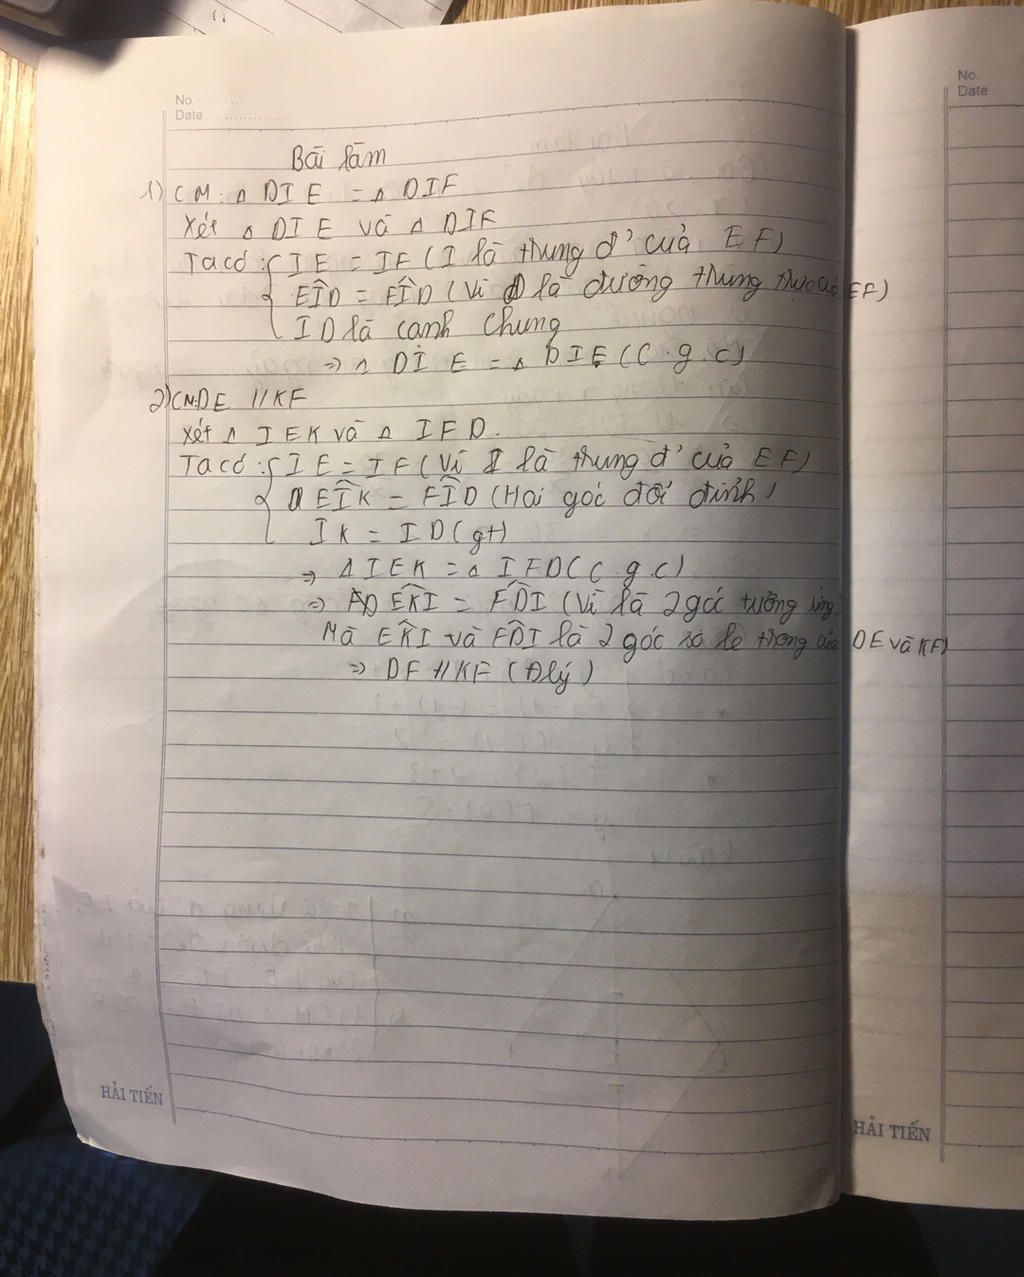 No.
Date
No.
Date
Bài làm
1) CM: Δ DIE = Δ DIF
Xét Δ DIE và Δ DIF
Ta có: { IE = IF (I là trung đ' của EF)
EÎD = FÎD (Vì D là đường trung trực của EF)
ID là cạnh chung
=> Δ DIE = Δ DIE (c.g.c)
2) CM: DE // KF
Xét Δ IEK và Δ IFD.
Ta có: { IE = IF (Vì I là trung đ' của EF)
EÎK = FÎD (Hai góc đối đỉnh)
IK = ID (gt)
=> Δ IEK = Δ IFD (c.g.c)
=> EK̂I = FD̂I (Vì là 2 góc tương ứng)
Mà EK̂I và FD̂I là 2 góc so le trong của DE và KF)
=> DF // KF (Đlý)
HẢI TIẾN
HẢI TIẾN